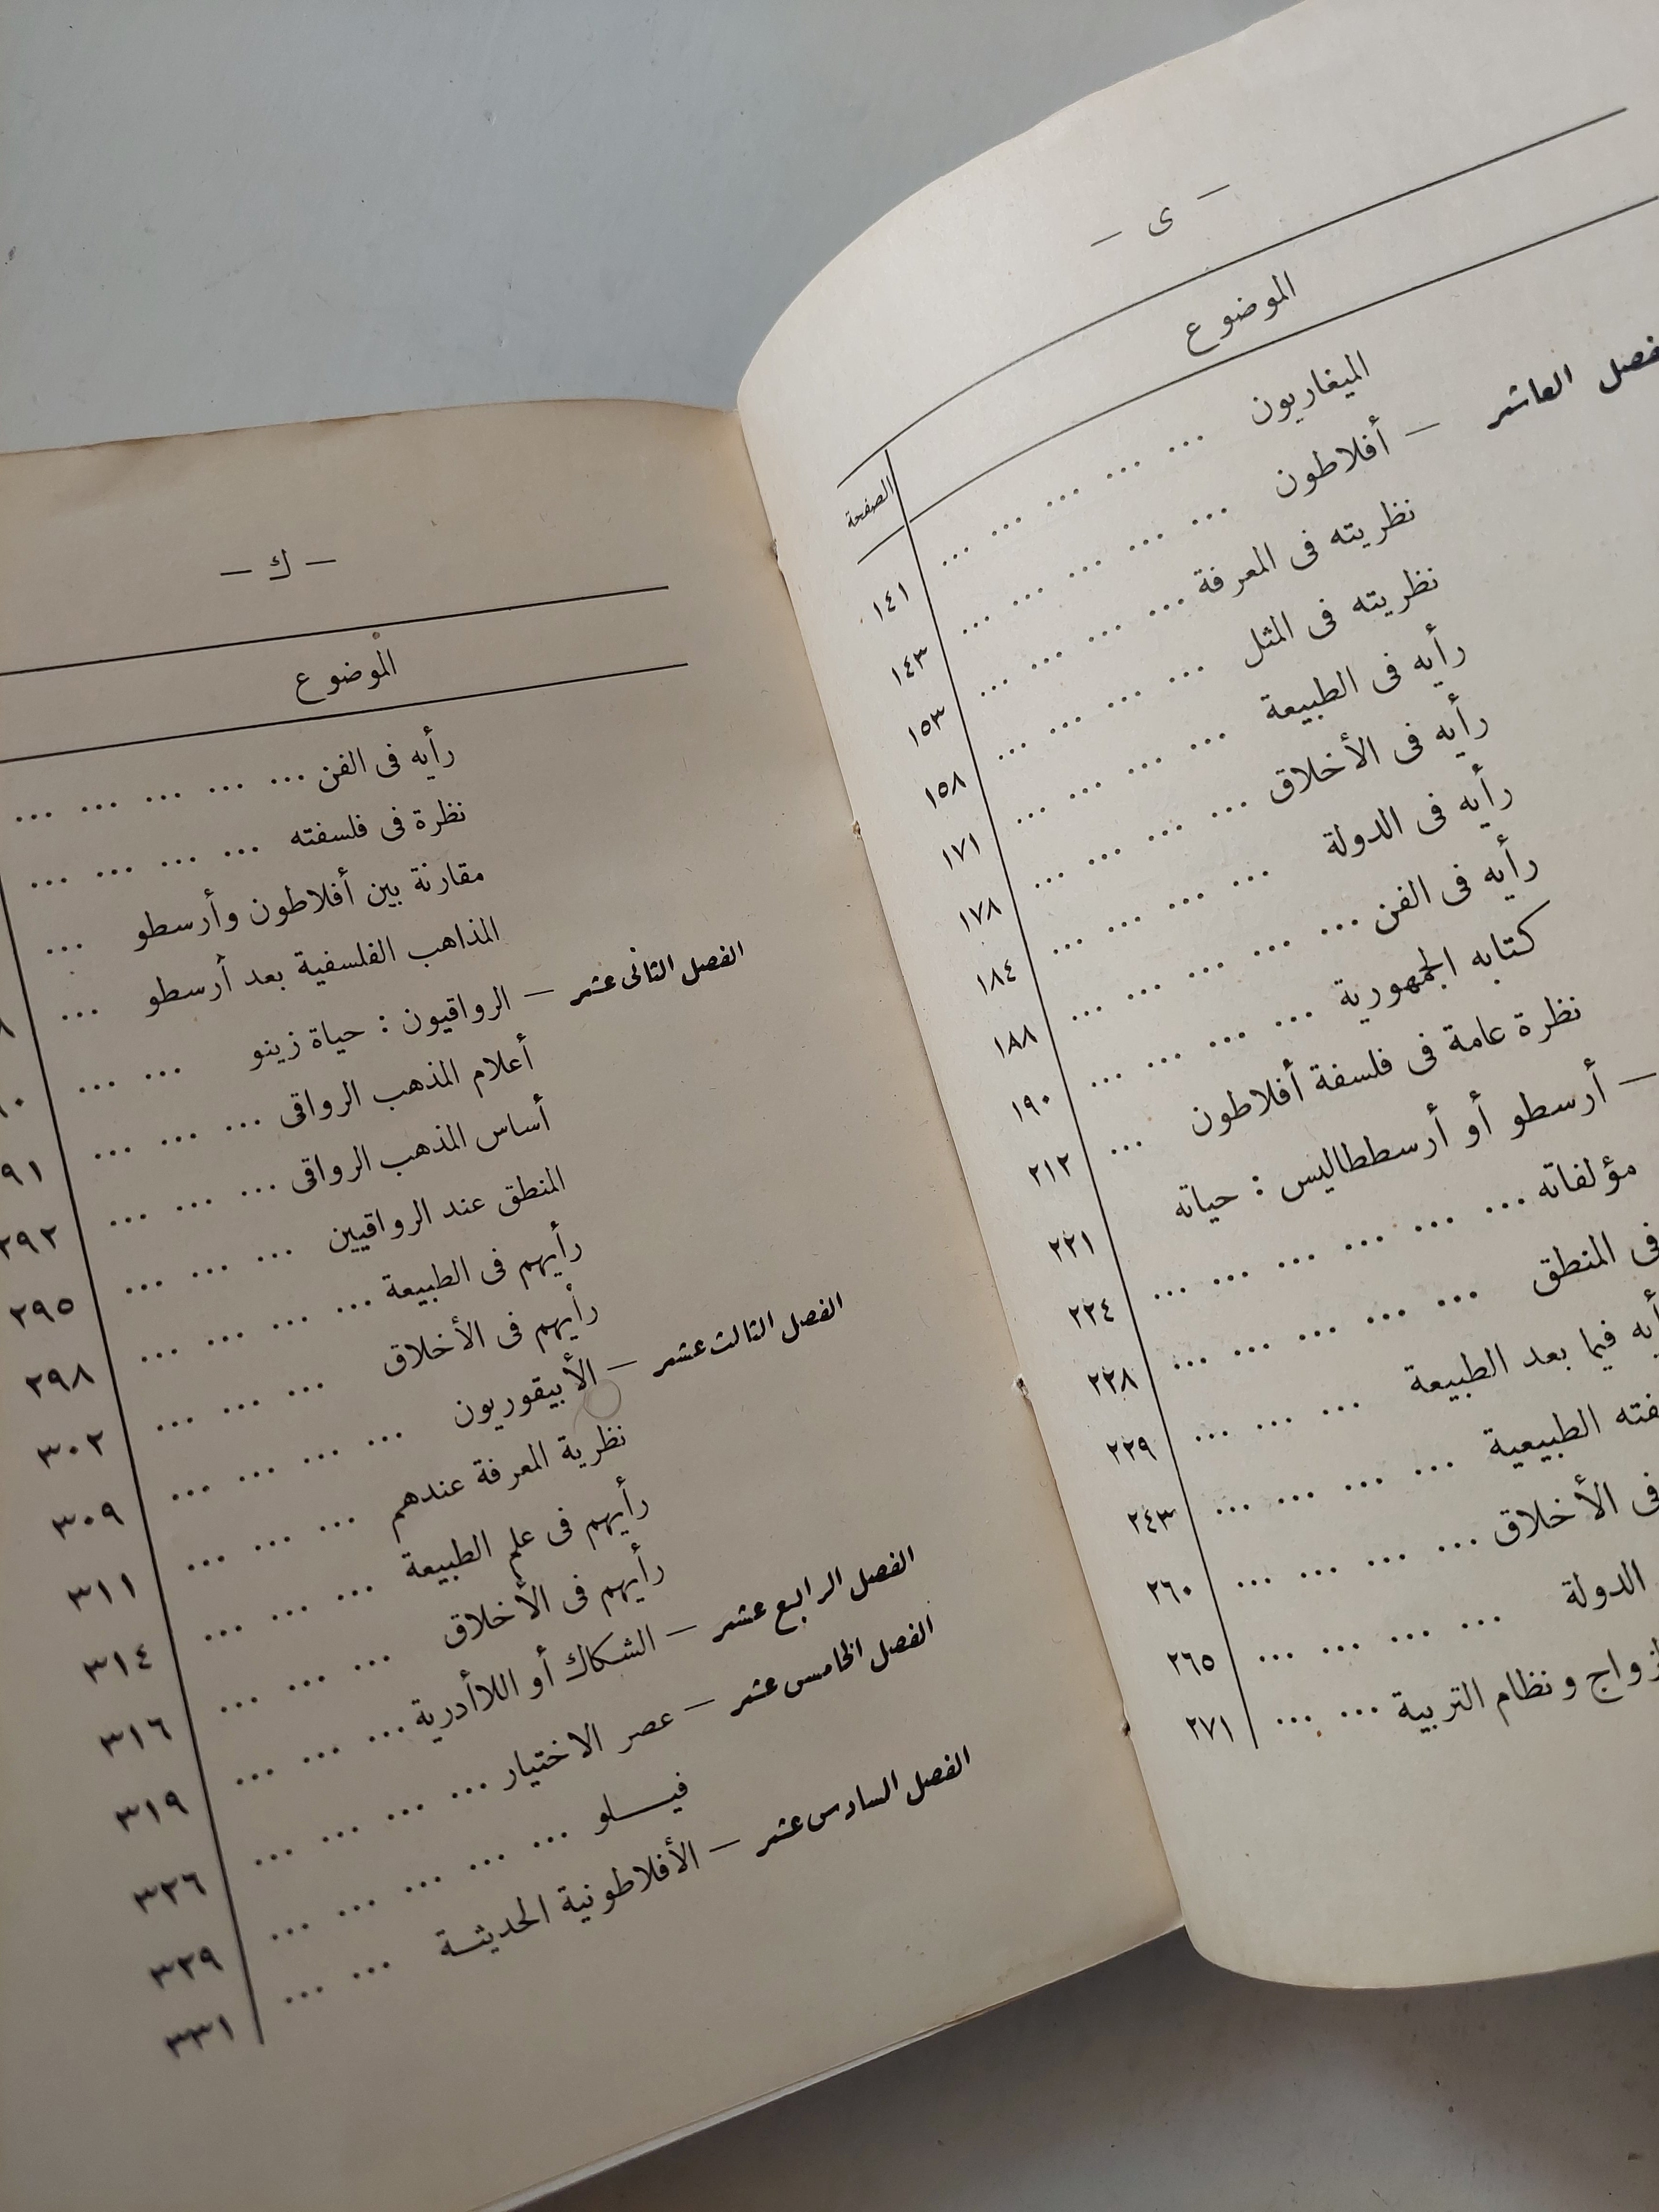 — ى —
الموضوع
الصفحة
الميغاريون ... ... ... ... ... ١٤١
الفصل العاشر — أفلاطون ... ... ... ... ... ١٤٣
نظريته فى المعرفة ... ... ... ... ١٥٣
نظريته فى المثل ... ... ... ... ١٥٨
رأيه فى الطبيعة ... ... ... ... ١٧١
رأيه فى الأخلاق ... ... ... ... ١٧٨
رأيه فى الدولة ... ... ... ... ١٨٤
رأيه فى الفن ... ... ... ... ... ١٨٨
كتابه الجمهورية ... ... ... ... ١٩٠
نظرة عامة فى فلسفة أفلاطون ... ٢١٢
— أرسطو أو أرسططاليس : حياته ٢٢١
مؤلفاته ... ... ... ... ... ... ٢٢٤
فى المنطق ... ... ... ... ... ٢٢٨
فيما بعد الطبيعة ... ... ... ٢٢٩
الطبيعية ... ... ... ... ٢٤٣
فى الأخلاق ... ... ... ... ٢٦٠
الدولة ... ... ... ... ٢٦٥
ونظام التربية ... ... ٢٧١
— ك —
الموضوع
رأيه فى الفن ... ... ... ... ...
نظرة فى فلسفته ... ... ... ...
مقارنة بين أفلاطون وأرسطو ...
المذاهب الفلسفية بعد أرسطو ...
الفصل الثانى عشر — الرواقيون : حياة زينو ... ...
أعلام المذهب الرواقى ... ... ...
أساس المذهب الرواقى ... ... ... ٢٩٢
المنطق عند الرواقيين ... ... ... ٢٩٥
رأيهم فى الطبيعة ... ... ... ... ٢٩٨
رأيهم فى الأخلاق ... ... ... ٣٠٢
الفصل الثالث عشر — الأبيقوريون ... ... ... ... ٣٠٩
نظرية المعرفة عندهم ... ... ... ٣١١
رأيهم فى علم الطبيعة ... ... ... ٣١٤
رأيهم فى الأخلاق ... ... ... ٣١٦
الفصل الرابع عشر — الشكاك أو اللاأدرية ... ... ... ٣١٩
الفصل الخامس عشر — عصر الاختيار ... ... ... ... ٣٢٦
فيــلو ... ... ... ... ... ٣٢٩
الفصل السادس عشر — الأفلاطونية الحديثــة ... ... ٣٣١